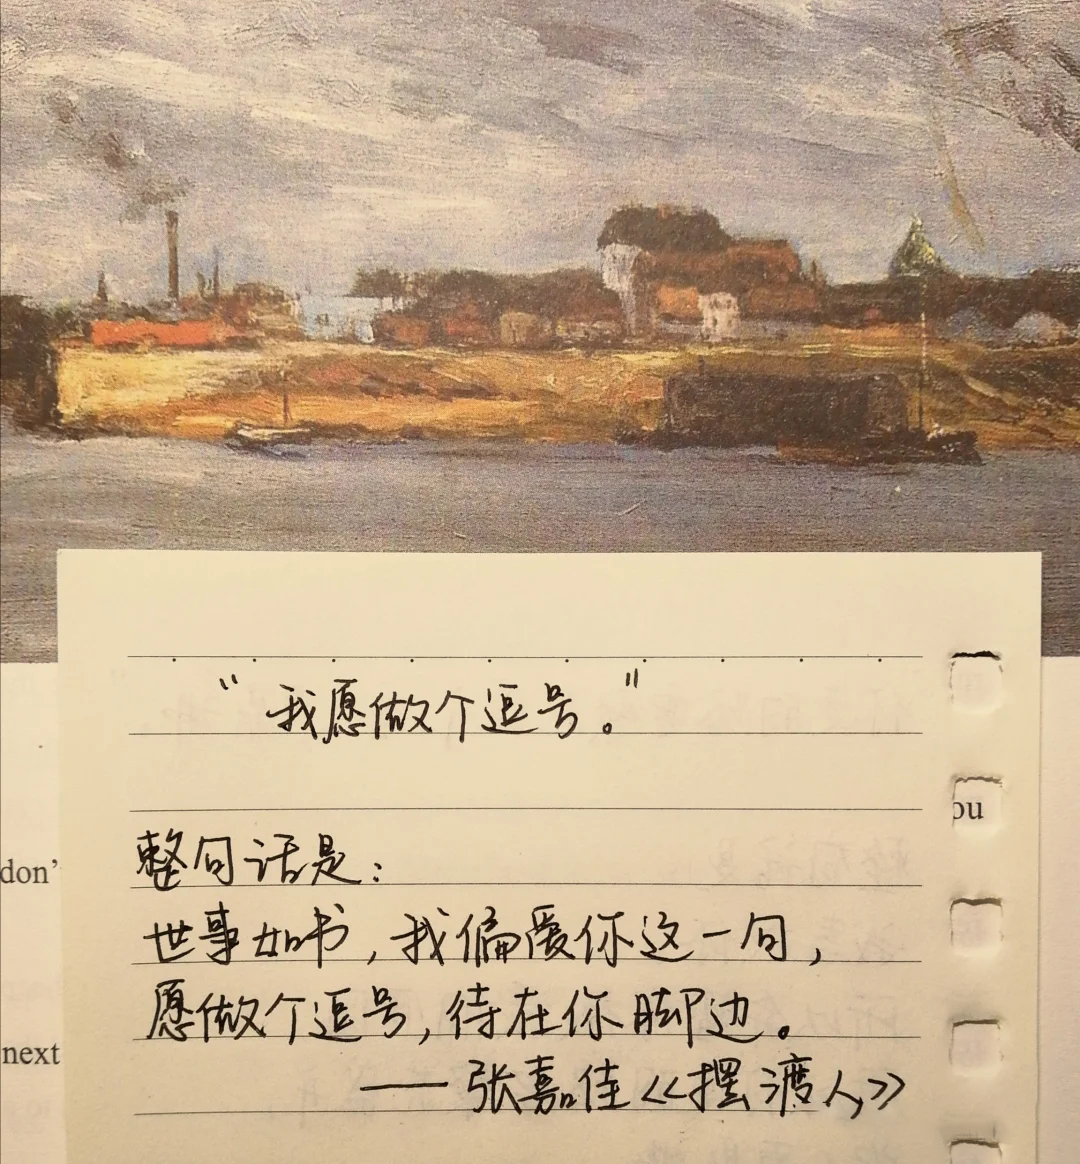 “我愿做个逗号。”
ou
整句话是：
don’
世事如书，我偏爱你这一句，
愿做个逗号，待在你脚边。
next
——张嘉佳《摆渡人》